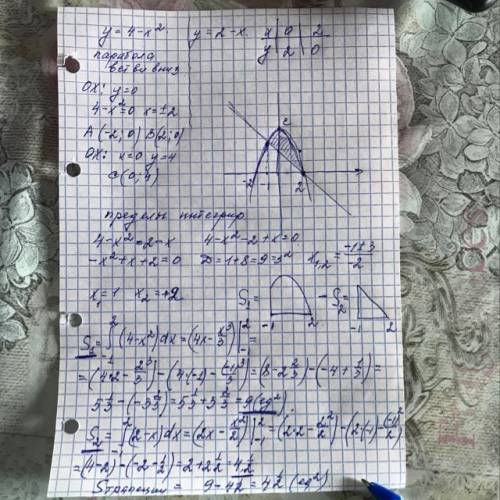 y = 4 - x² y = 2 - x x 0 2
y 2 0
парабола
ветви вниз
OX: y=0
4 - x² = 0 x = ±2
A(-2; 0) B(2; 0)
OX: x=0 y=4
C(0; 4)
C
-2 -1 2
пределы интегрир
4 - x² = 2 - x 4 - x² - 2 + x = 0
-x² + x + 2 = 0 D = 1 + 8 = 9 = 3² x₁,₂ = (-1 ± 3)/-2
x₁ = 1 x₂ = +2 S₁ = - S₂ =
-1 2 -1 2
S₁ = ∫₋₁² (4 - x²)dx = (4x - x³/3)|₋₁² =
= (4·2 - 2³/3) - (4(-1) - (-1)³/3) = (8 - 2 2/3) - (-4 + 1/3) =
5 1/3 - (-3 2/3) = 5 1/3 + 3 2/3 = 9 (ед²)
S₂ = ∫₋₁² (2 - x)dx = (2x - x²/2)|₋₁² = (2·2 - 2²/2) - (2(-1) - (-1)²/2)
= (4 - 2) - (-2 - 1/2) = 2 + 2 1/2 = 4 1/2
= 9 - 4 1/2 = 4 1/2 (ед²)